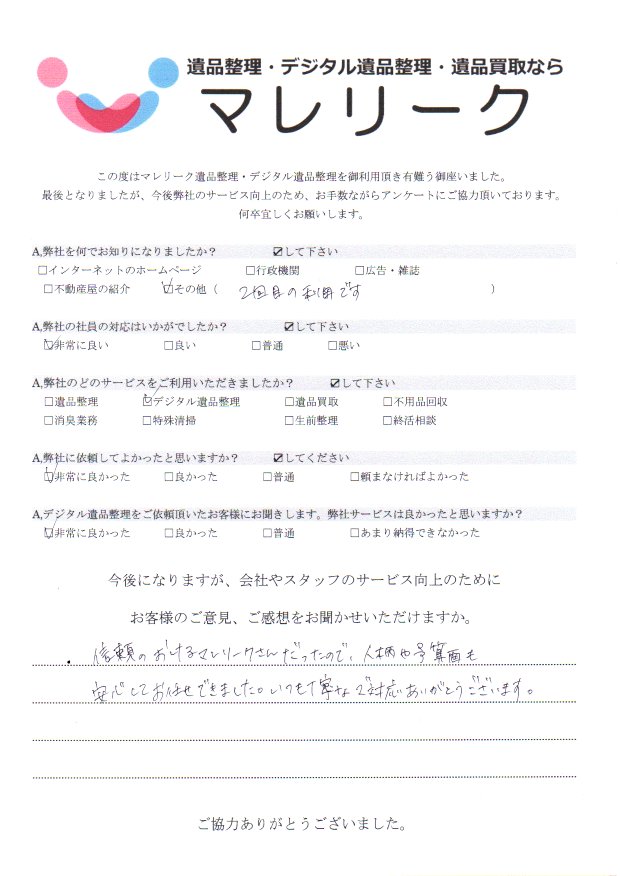 遺品整理・デジタル遺品整理・遺品買取なら
マレリーク
この度はマレリーク遺品整理・デジタル遺品整理を御利用頂き有難う御座いました。
最後となりましたが、今後弊社のサービス向上のため、お手数ながらアンケートにご協力頂いております。
何卒宜しくお願いします。
A,弊社を何でお知りになりましたか？ ☑して下さい
☐インターネットのホームページ ☐行政機関 ☐広告・雑誌
☐不動産屋の紹介 ☑その他（ 2回目の利用です ）
A,弊社の社員の対応はいかがでしたか？ ☑して下さい
☑非常に良い ☐良い ☐普通 ☐悪い
A,弊社のどのサービスをご利用いただきましたか？ ☑して下さい
☐遺品整理 ☑デジタル遺品整理 ☐遺品買取 ☐不用品回収
☐消臭業務 ☐特殊清掃 ☐生前整理 ☐終活相談
A,弊社に依頼してよかったと思いますか？ ☑してください
☑非常に良かった ☐良かった ☐普通 ☐頼まなければよかった
A,デジタル遺品整理をご依頼頂いたお客様にお聞きします。弊社サービスは良かったと思いますか？
☑非常に良かった ☐良かった ☐普通 ☐あまり納得できなかった
今後になりますが、会社やスタッフのサービス向上のために
お客様のご意見、ご感想をお聞かせいただけますか。
・信頼のおけるマレリークさんだったので、人柄や予算面も
安心してお任せできました。いつも丁寧なご対応ありがとうございます。
ご協力ありがとうございました。